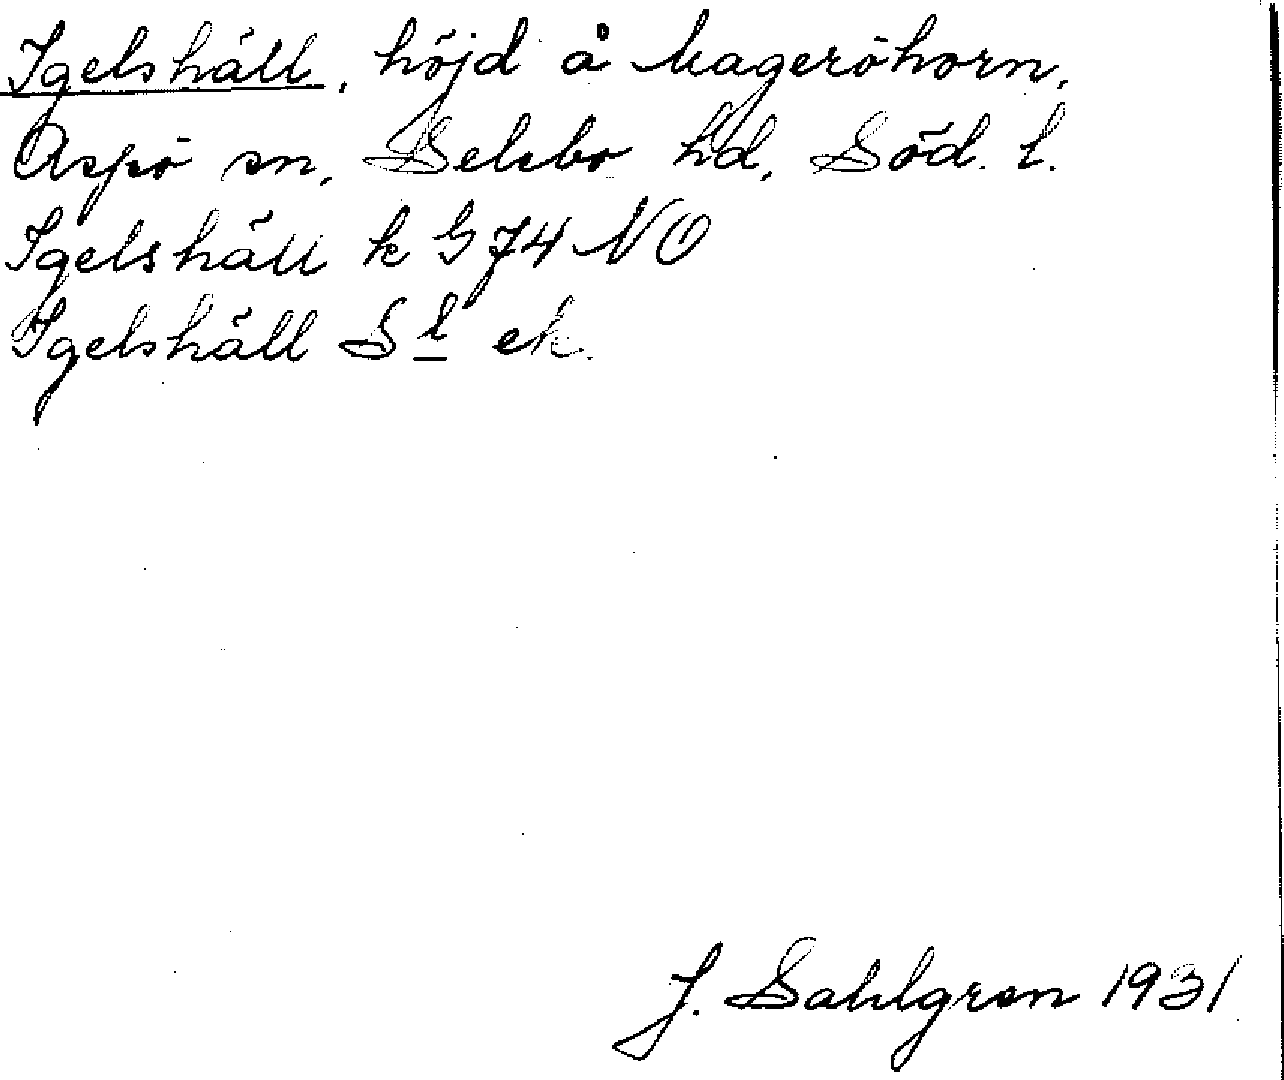 Igelshäll, höjd å Mageröhorn,
Aspö sn, Selebo hd, Söd. l.
Igelshäll k G 74 NO
Igelshäll Sl ek.
J. Sahlgren 1931